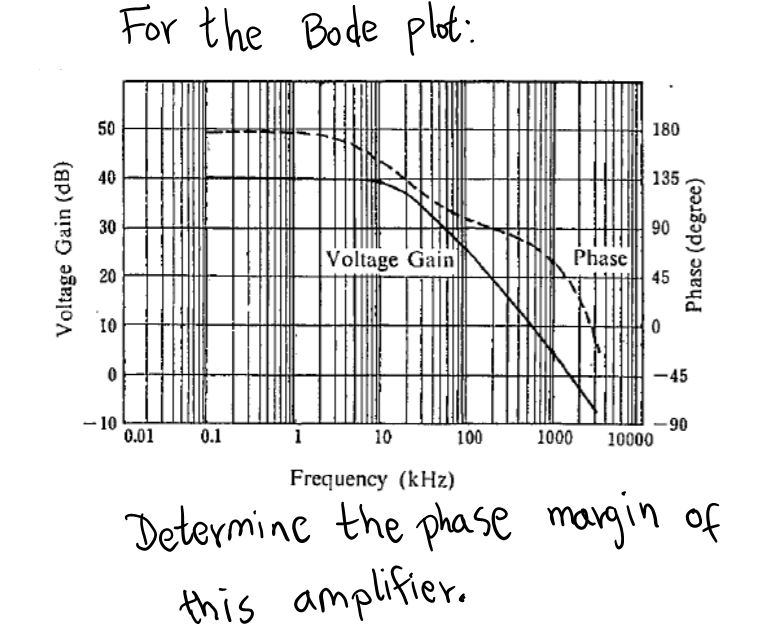 For the Bode plot:
50
40
30
20
10
0
-10
Voltage Gain (dB)
180
135
90
45
0
-45
-90
Phase (degree)
Voltage Gain
Phase
0.01 0.1 1 10 100 1000 10000
Frequency (kHz)
Determine the phase margin of
this amplifier.